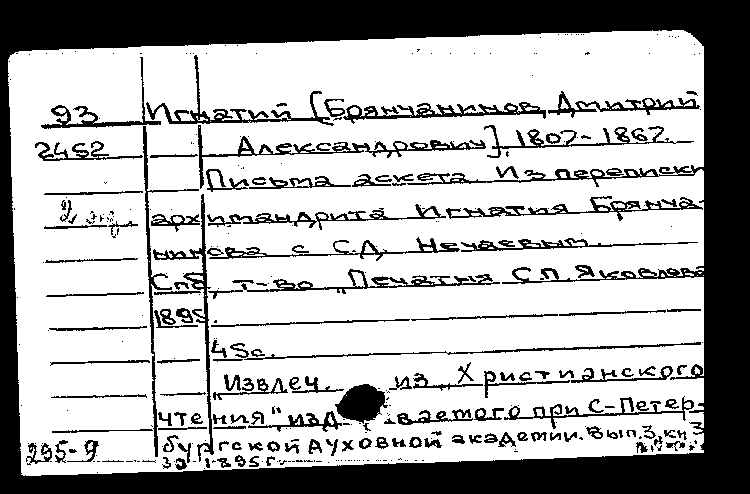 93 Игнатий [Брянчанинов, Дмитрий
2462 Александрович], 1807-1867.
Письма аскета Из переписки
2 экз. архимандрита Игнатия Брянча-
нинова с С.Д. Нечаевым.
Спб, т-во „Печатня С.П. Яковлева
1895.
45с.
„Извлеч. из „Христианского
чтения", изд вaемого при С-Петер-
бургской духовной академии. Вып.3, кн 3
295-9 за 1895г.